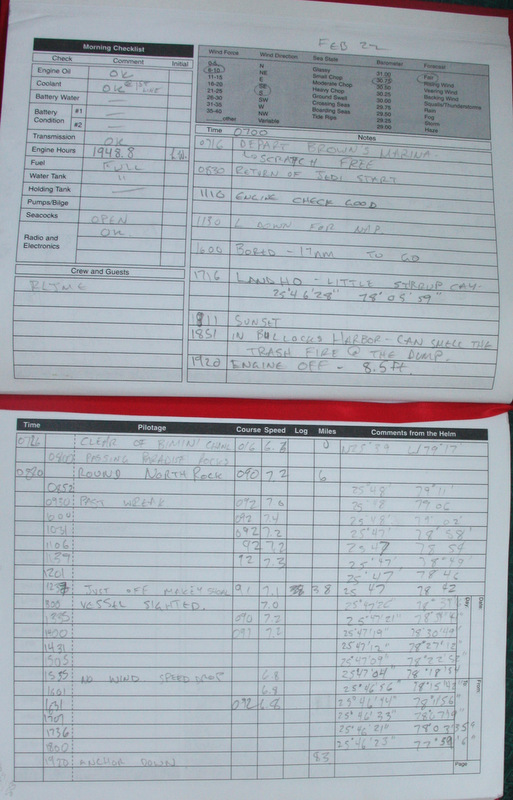 FEB 22
Morning Checklist
Check Comment Initial
Engine Oil OK
Coolant OK
Battery Water
Battery Condition #1
#2
Transmission OK
Engine Hours 1948.8
Fuel FULL
Water Tank "
Holding Tank
Pumps/Bilge
Seacocks OPEN
Radio and Electronics OK
Crew and Guests
Wind Force Wind Direction Sea State Barometer Forecast
0-5 N Glassy 31.00 Fair
6-10 NE Small Chop 30.75 Rising Wind
11-15 E Moderate Chop 30.50 Veering Wind
16-20 SE Heavy Chop 30.25 Backing Wind
21-25 S Ground Swell 30.00 Squalls/Thunderstorms
26-30 SW Crossing Seas 29.75 Rain
31-35 W Boarding Seas 29.50 Fog
35-40 NW Tide Rips 29.25 Snow
other Variable 29.00 Haze
Time 0700 Notes
0716 DEPART BROWN'S MARINA-
SCRATCH FREE
0830 RETURN OF JEDI START
1110 ENGINE CHECK GOOD
1130 L DOWN FOR NAP
1600 BORED - 17NM TO GO
1716 LAND HO - LITTLE STIRUP CAY-
25°46'28" 78°05'59"
1811 SUNSET
1851 IN BULLOCKS HARBOR - CAN SMELL THE
TRASH FIRE @ THE DUMP.
1920 ENGINE OFF - 8.5ft.
Time Pilotage Course Speed Log Miles Comments from the Helm
CLEAR OF BIMINI 0 N25°39 W79°17
PASSING PARADISE
ROUND NORTH ROCK 090 7.2 6
0852 25°48 79°11'
0930 PAST WREAK 092 7.6 79 06
1004 092 7.4 25°48' 79°02'
1031 092 7.2 25°47' 78°58'
1106 92 7.2 25 47 78 54
1139 92 7.3 25°47' 78°49'
1201 25°47' 78 46
JUST OFF 91 7.1 38 25 47 78 42
VESSEL SIGHTED. 7.0
090 7.2 25°47'21"
1400 091 7.2 25°47'19" 78°30'49"
1431 25°47'12" 78°27'12
25°47'09" 78°22'52"
1535 NO WIND SPEED DROP 6.8 25°47'04" 78°18'54
1601 6.8 25°46'56" 78°15'42
1631 6.8 25°46'44"
25°46'33"
1736 25°46'21" 78°02'35"
1800 25°46'25" 77°59'6"
1920 ANCHOR DOWN 83
Date
Day
From
Page